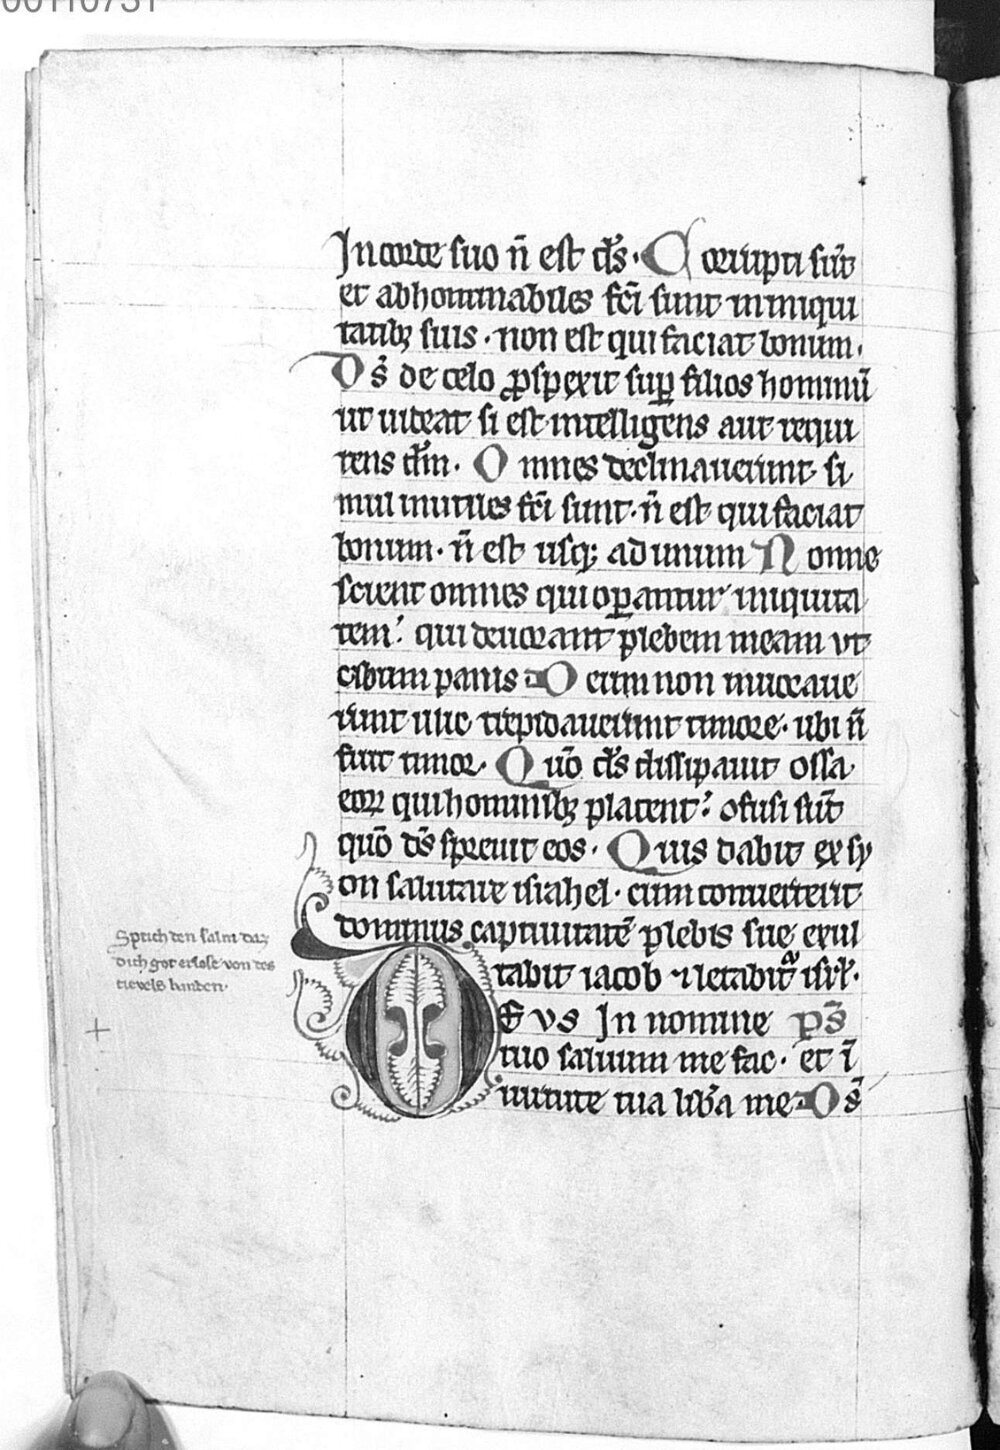 00110731
In corde suo n̄ est ds̄. Corrupti sūt
et abhominabiles fc̄i sunt in iniqui
tatibꝫ suis. non est qui faciat bonum.
Ds̄ de celo ꝓspexit suꝑ filios hominū
ut uideat si est intelligens aut requi
rens dm̄. Omnes declinauerunt si
mul inutiles fc̄i sunt. n̄ est qui faciat
bonum. n̄ est usqꝫ ad unum Nonne
scient omnes qui oꝑantur iniquita
tem? qui deuorant plebem meam vt
cibum panis Deum non inuocaue
runt illic trepidauerunt timore. ubi n̄
fuit timor. Quō ds̄ dissipauit ossa
eoꝝ qui hominibꝫ placent? ꝯfusi sūt
quō ds̄ spreuit eos. Quis dabit ex sy
on salutare israhel. cum conuerterit
dominus captiuitatē plebis sue exul
tabit iacob ⁊ letabitᷓ isrl̄.
Sprich den salm daz
dich got erlose von des
tievels banden.
DEVS In nomine ps̄
tuo saluum me fac. et ī
uirtute tua libᷓa me Ds̄